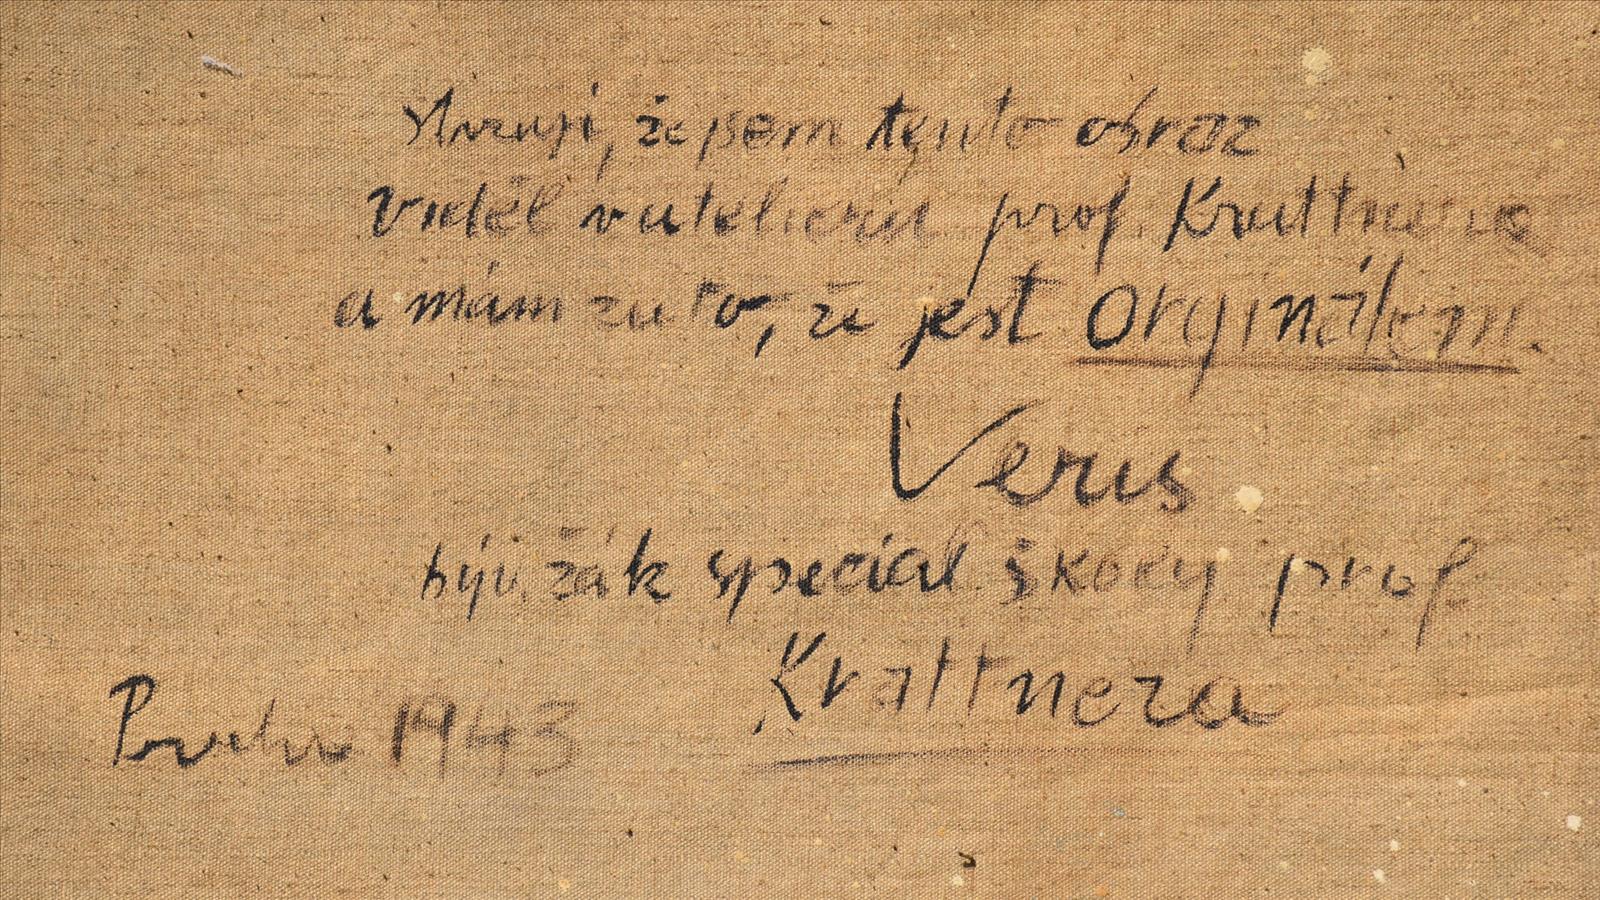 stvrzuji, že jsem tento obraz
viděl v atelieru prof. Krattnera
a mám za to, že jest orginálem.
Verus
býv. žák special školy prof
Krattnera
Praha 1943